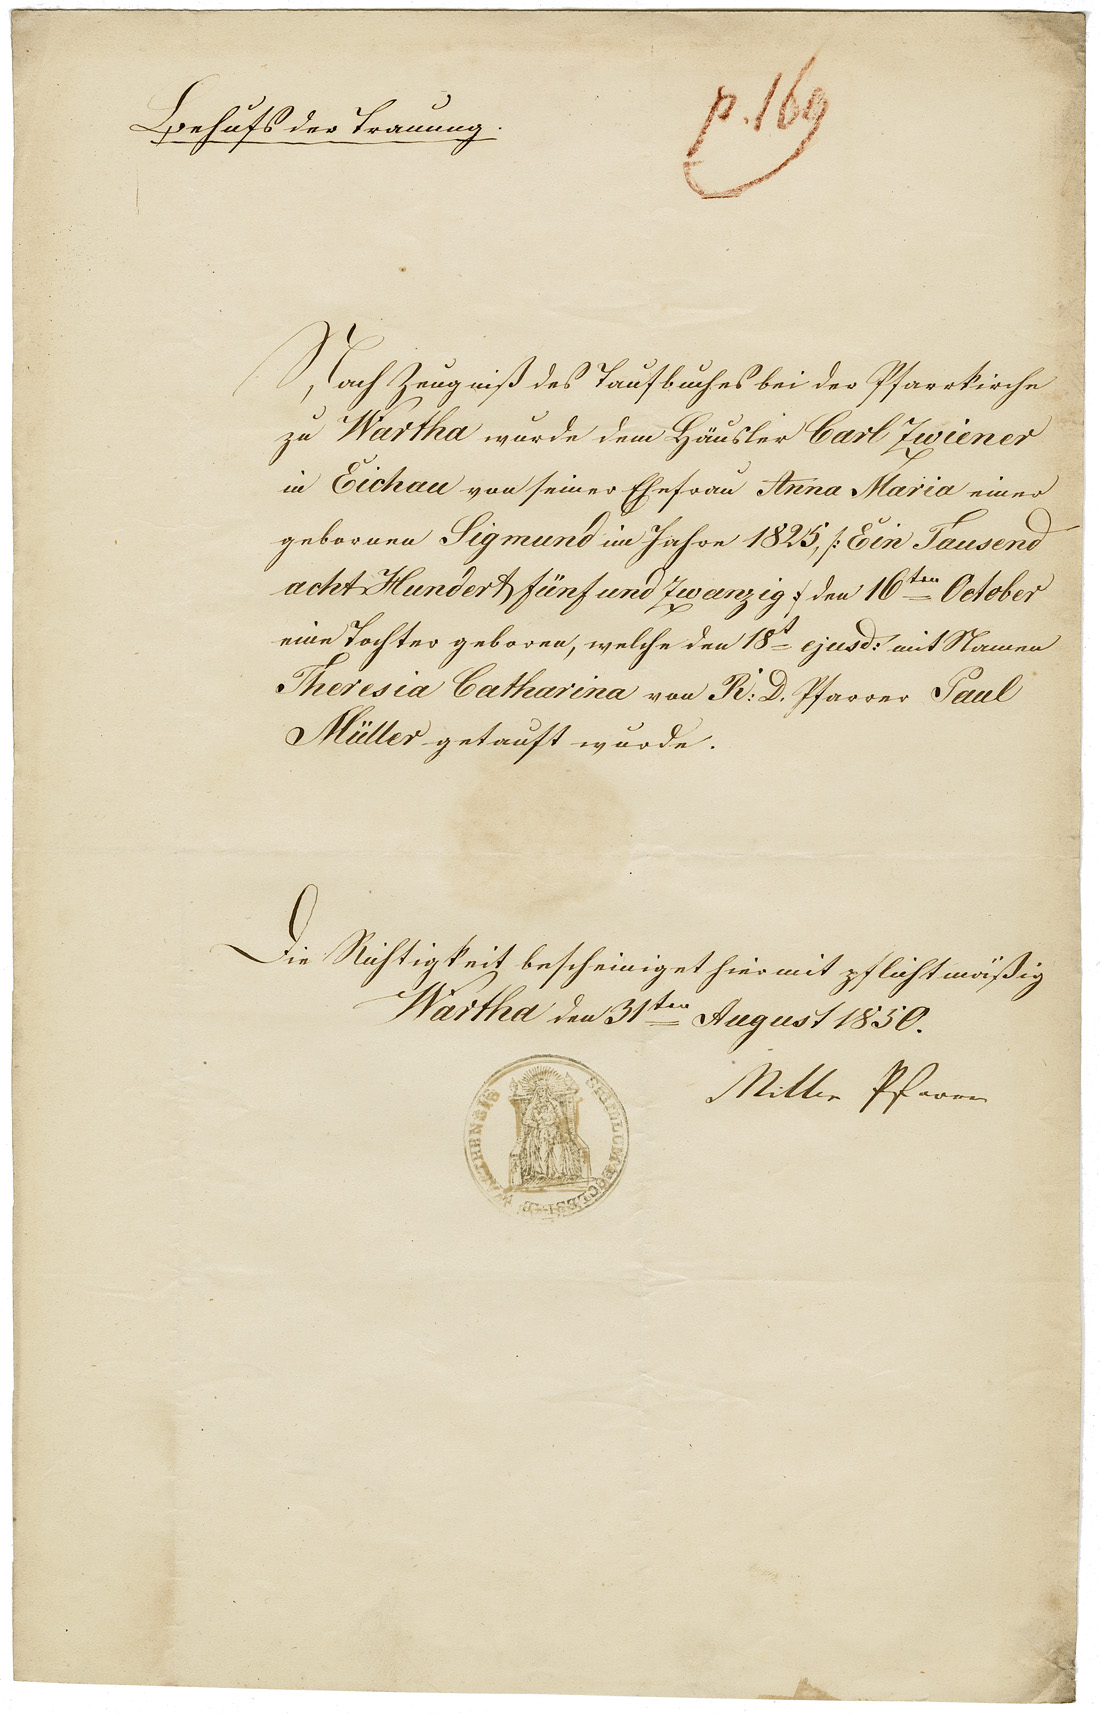 Behufs der Trauung.
p. 169
Nach Zeugniß des Taufbuches bei der Pfarrkirche
zu Wartha wurde dem Häusler Carl Zwiener
in Eichau von seiner Ehefrau Anna Maria einer
gebornen Sigmund im Jahre 1825, /: Ein Tausend
acht Hundert fünf und zwanzig :/ den 16ten October
eine Tochter geboren, welche den 18t ejusd: mit Namen
Theresia Catharina von R: D. Pfarrer Paul
Müller getauft wurde.
Die Richtigkeit bescheiniget hiermit pflichtmäßig
Wartha den 31ten August 1850.
Pfarrer
SIGILLUM ECCLESIAE WARTHENSIS